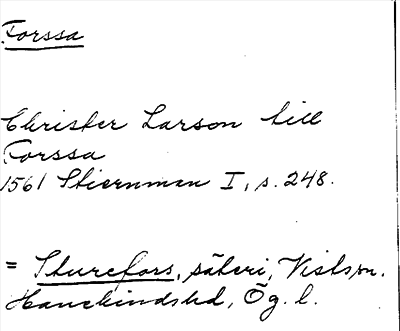 Forssa
Christer Larson till
Forssa
1561 Stiernman I, s. 248.
= Sturefors, säteri, Vists sn.
Hanekinds hd, Ög. l.